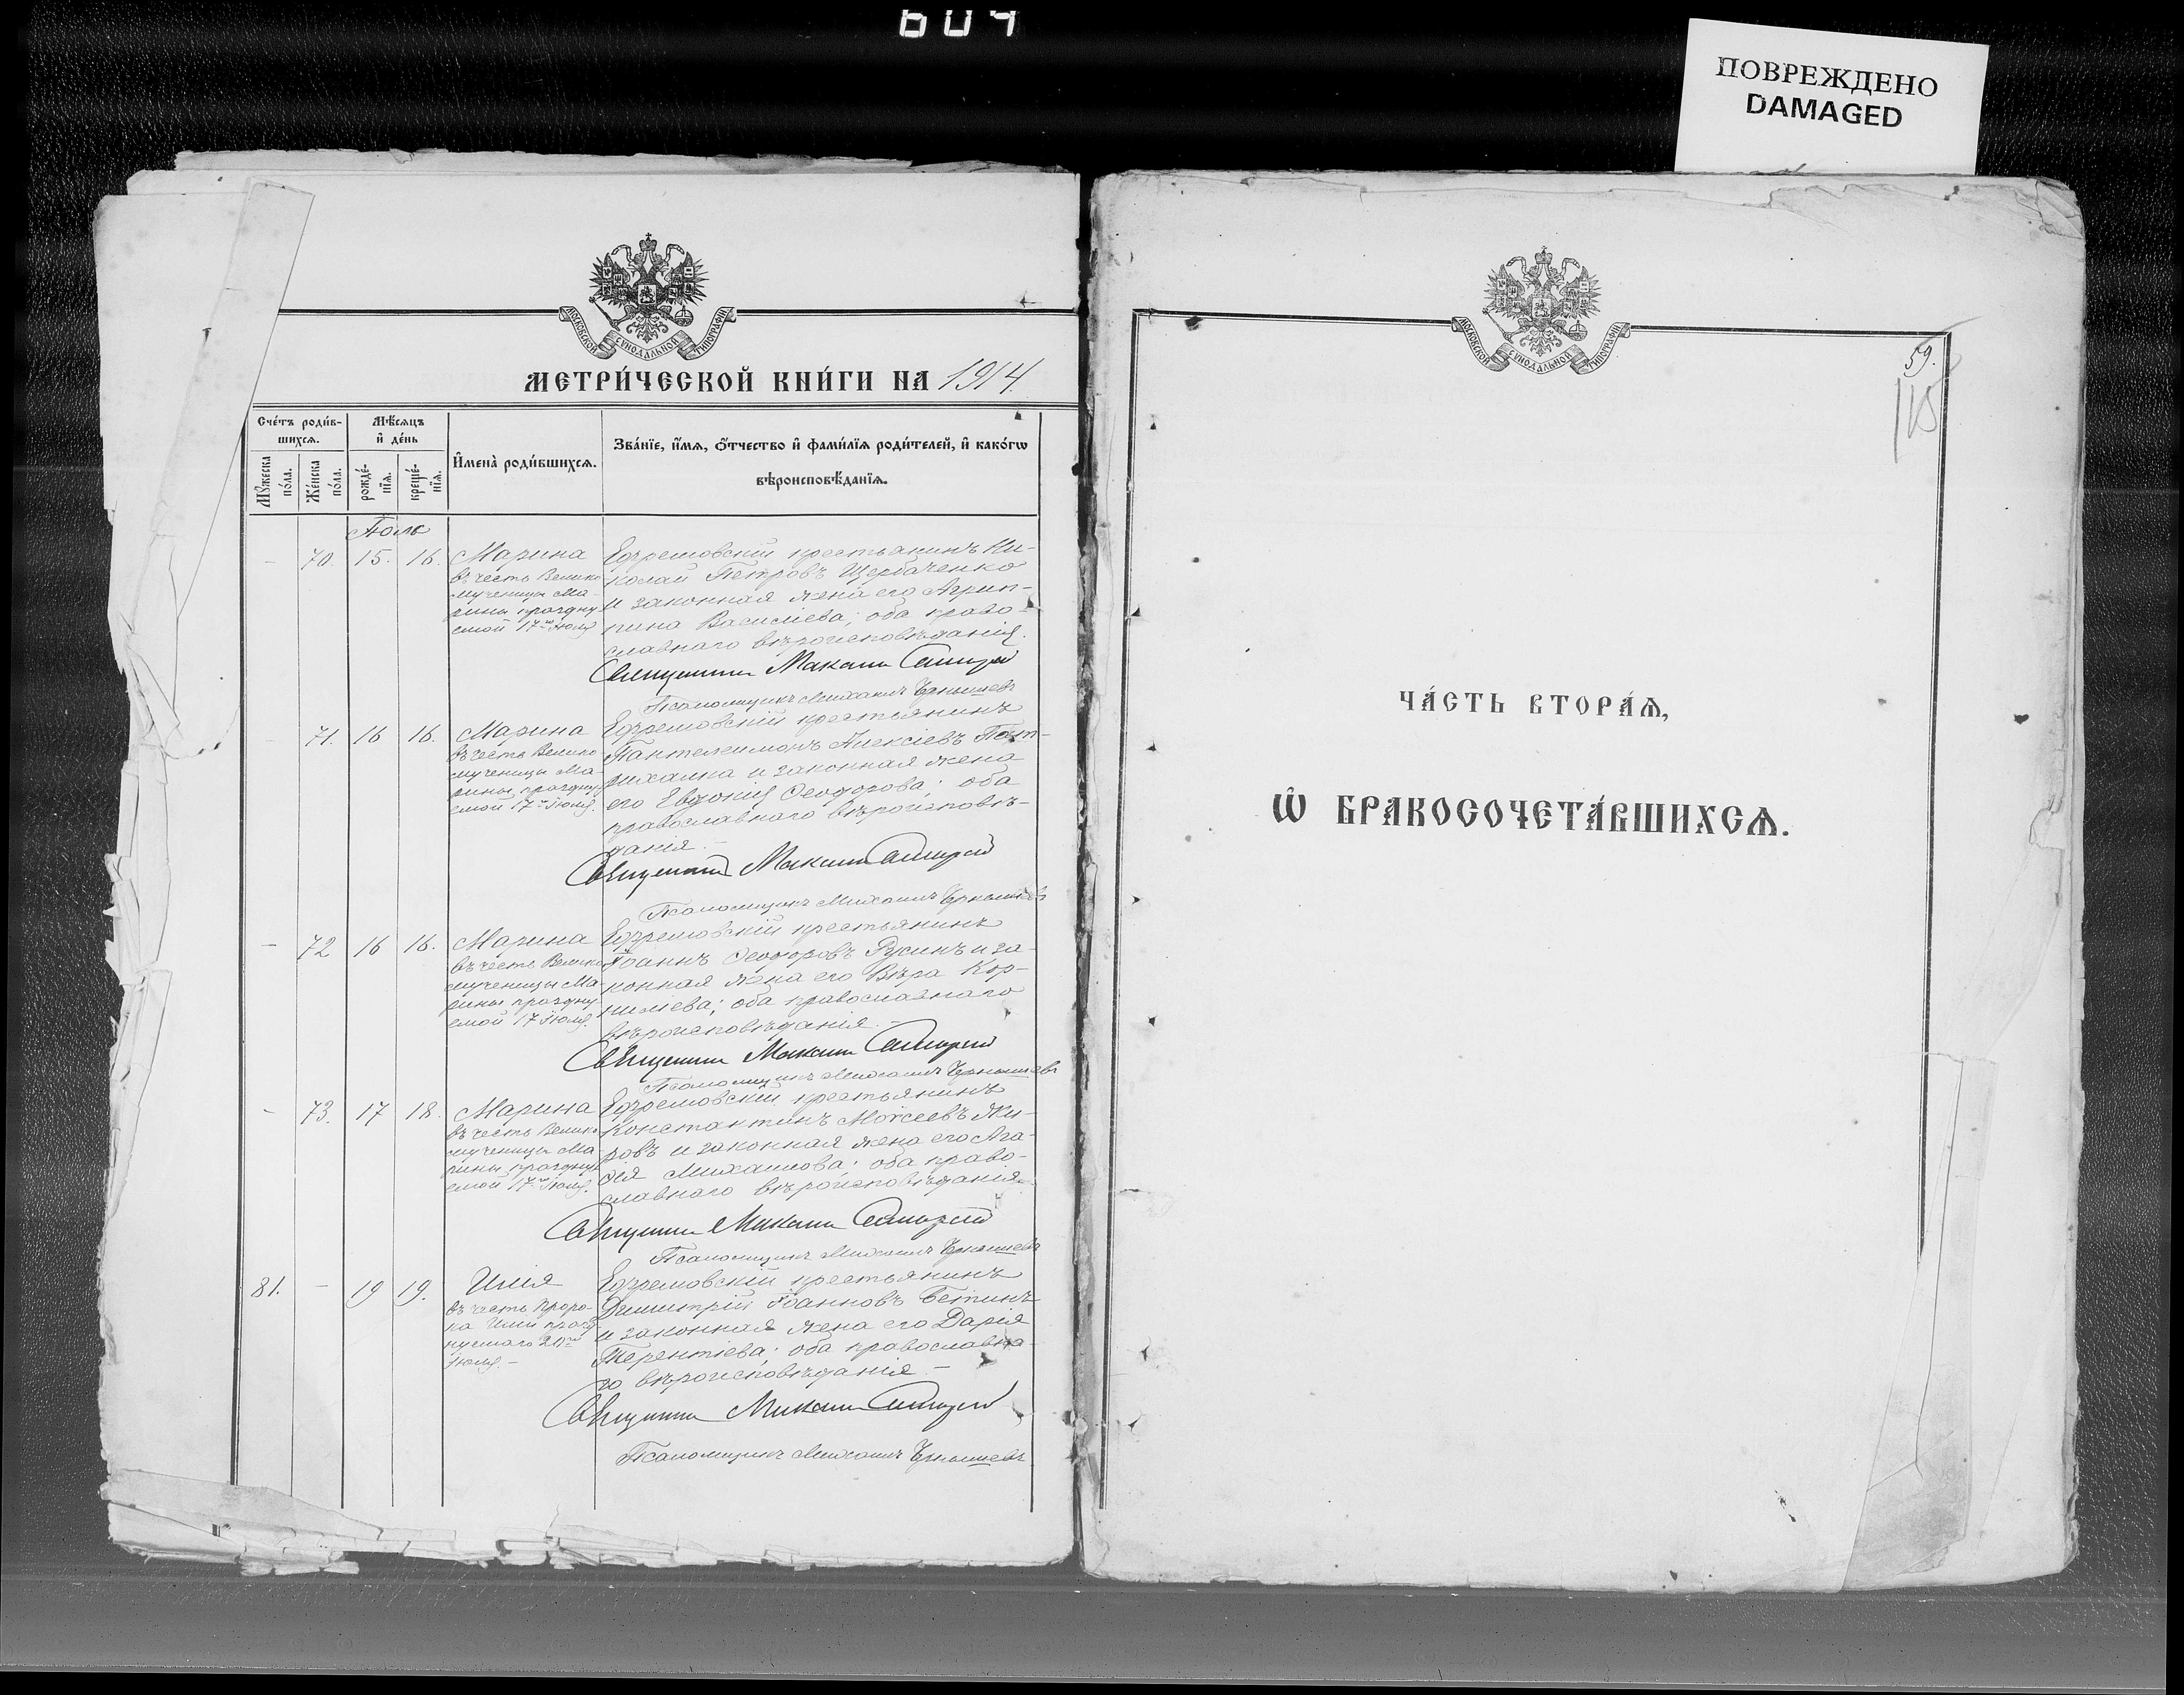 604
ПОВРЕЖДЕНО
DAMAGED
МОСКОВСКОЙ СУНОДАЛЬНОЙ ТИПОГРАФИИ
МЕТРИ́ЧЕСКОЙ КНИ́ГИ НА 1914.
Сче́тъ роди́в-
шихсѧ.
Мѣ́сѧцъ
и҆ де́нь
И҆мена̀ роди́вшихсѧ.
Зва́нїе, и҆́мѧ, ѻ҆́тчество и҆ фами́лїѧ роди́телей, и҆ како́гѡ
вѣроисповѣ́данїѧ.
Мꙋ́жеска
по́ла.
Же́нска
по́ла.
рожде́-
нїѧ.
креще́-
нїѧ.
Іюль
— 70. 15. 16. Марина
въ честь Велико
мученицы Ма-
рины праздну
емой 17го Іюля
Ефремовскій крестьянинъ Ни-
колай Петровъ Щербаченко
и законная жена его Агрип-
пина Васильева; оба право-
славнаго вѣроисповѣданія.
Священникъ Максим
Псаломщикъ Михаилъ Чернышевъ
— 71. 16 16. Марина
въ честь Велико
мученицы Ма-
рины празdну
емой 17го Іюля.
Ефремовскій крестьянинъ
Пантелеимонъ Алексіевъ Пат-
рихалка и законная жена
его Евдокія Ѳеодорова; оба
православнаго вѣроисповѣ-
данія.—
Священникъ Максим
Псаломщикъ Михаилъ Чернышевъ
— 72 16 16. Марина
въ честь Велико
мученицы Ма-
рины праздну-
емой 17 Іюля.
Ефремовскій крестьянинъ
Іоаннъ Ѳеодоровъ Русинъ и за-
конная жена его Вѣра Кор-
нилiева; оба православнаго
вѣроисповѣданія.—
Священникъ Максим
Псаломщикъ Михаилъ Чернышевъ
— 73. 17 18. Марина
въ честь Велико
мученицы Ма
рины праздну
емой 17го Іюля.
Ефремовскій крестьянинъ
Константинъ Моѵсеевъ Жи-
ровъ и законная жена его Ага-
ѳія Михаилова; оба право-
славнаго вѣроисповѣданія.
Священникъ Максим
Псаломщикъ Михаилъ Чернышевъ
81. — 19 19. Илія
въ честь Проро-
ка Иліи празд
нуемаго 20го
Іюля.—
Ефремовскій крестьянинъ
Димитрій Іоанновъ Бетинъ
и законная жена его Дарія
Терентіева; оба православна-
го вѣроисповѣданія.—
Священникъ Максим
Псаломщикъ Михаилъ Чернышевъ
МОСКОВСКОЙ СУНОДАЛЬНОЙ ТИПОГРАФИИ
59.
115
ЧА́СТЬ ВТОРА́Ѧ,
Ѡ҆ БРАКОСОЧЕТА́ВШИХСѦ.